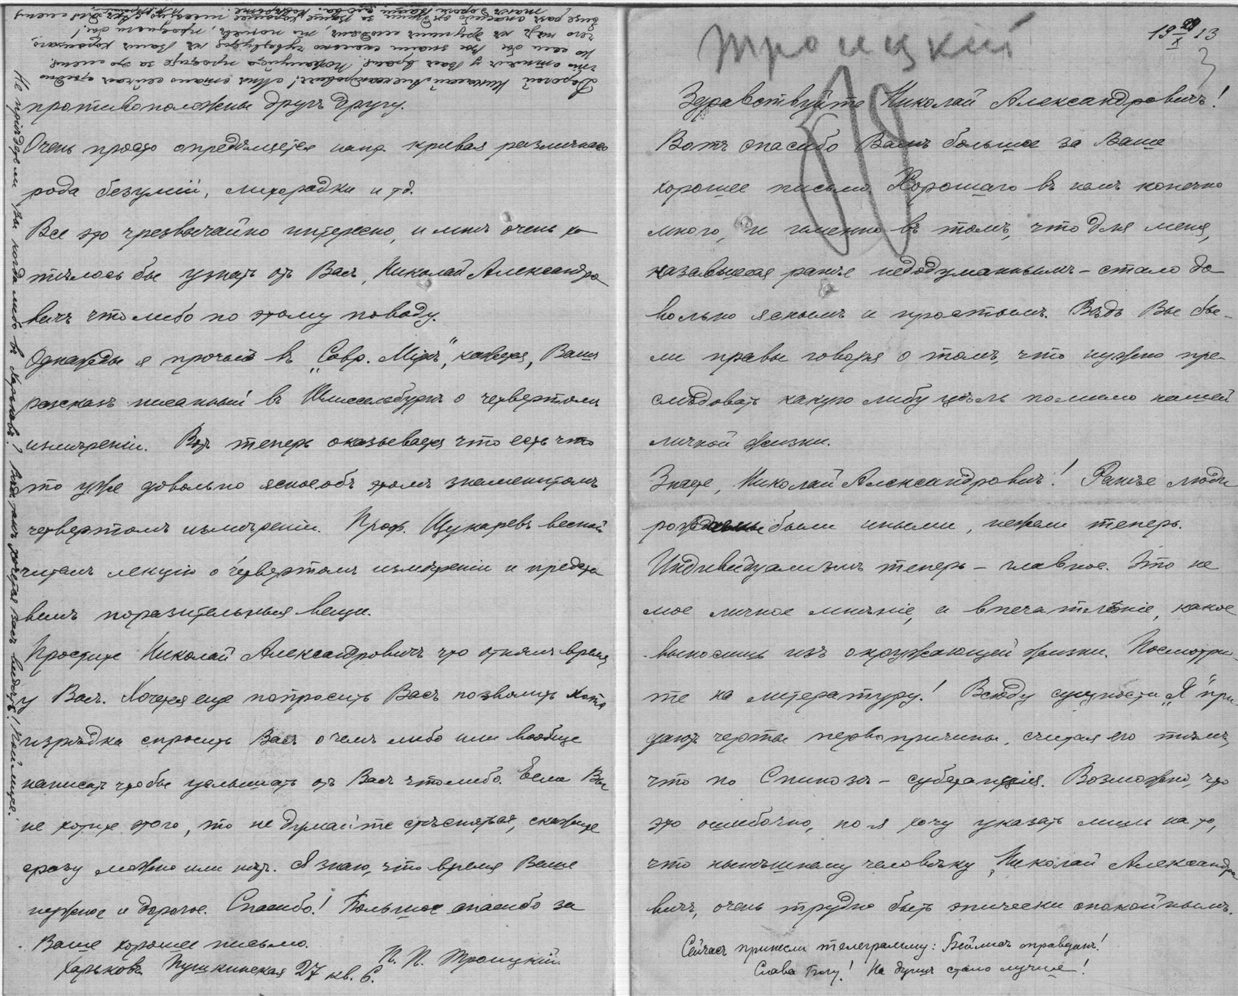 Троицкий
19 29/X 13
3
Здравствуйте Николай Александровичъ!
Вотъ спасибо Вамъ большое за Ваше
хорошее письмо. Хорошаго въ немъ конечно
много, и именно въ томъ, что для меня,
казавшееся ранѣе недодуманнымъ – стало до
вольно яснымъ и простымъ. Вѣдь Вы бы-
ли правы говоря о томъ, что нужно пре-
слѣдовать какую либу цѣль помимо нашей
личной жизни.
Знаете, Николай Александровичъ! Ранѣе люди
были иными, нежели теперь.
Индивидуализмъ теперь – главное. Это не
мое личное мнѣніе, а впечатлѣніе, какое
выносишь изъ окружающей жизни. Посмотри-
те на литературу! Всюду сущности „Я" при
даютъ черты первопричины, считая его тѣмъ,
что по Спинозѣ – субстанція. Возможно, что
это ошибочно, но я хочу указать лишь на то,
что нынѣшнему человѣку, Николай Александро
вичъ, очень трудно быть эпически спокойнымъ.
Сейчасъ принесли телеграмму: Бейлисъ оправданъ!
Слава Богу! На душѣ стало лучше!
противоположны другъ другу.
Очень просто опредѣляется напр. кривая различнаго
рода безумій, лихорадки и тд.
Все это чрезвычайно интересно, и мнѣ очень хо
тѣлось бы узнать отъ Васъ, Николай Александро
вичъ что либо по этому поводу.
Однажды я прочелъ въ „Совр. Мірѣ", кажется, Вашъ
разсказъ писанный въ Шлиссельбургѣ о четвертомъ
измѣреніи. Вотъ теперь оказывается что есть что
то уже довольно ясное объ этомъ знаменитомъ
четвертомъ измѣреніи. Проф. Щукаревъ весной
читалъ лекцію о четвертомъ измѣреніи и предста
вилъ поразительныя вещи.
Простите Николай Александровичъ что отнялъ время
у Васъ. Хочется еще попросить Васъ позволить хотя
изрѣдка спросить Васъ о чемъ либо или вообще
написать чтобы услышать отъ Васъ что либо. Если Вы
не хотите этого, то не думайте стѣсняться, скажите
сразу можно или нѣтъ. Я знаю, что время Ваше
нужное и дорогое. Спасибо! Большое спасибо за
Ваше хорошее письмо.
П. П. Троицкій
Харьковъ Пушкинская 27 кв. 6.
Не пріѣдете ли Вы когда либо въ Харьковъ? Васъ видѣть!
Дорогой Николай Александровичъ! Мнѣ стыдно сейчасъ
что отнялъ у Васъ время.